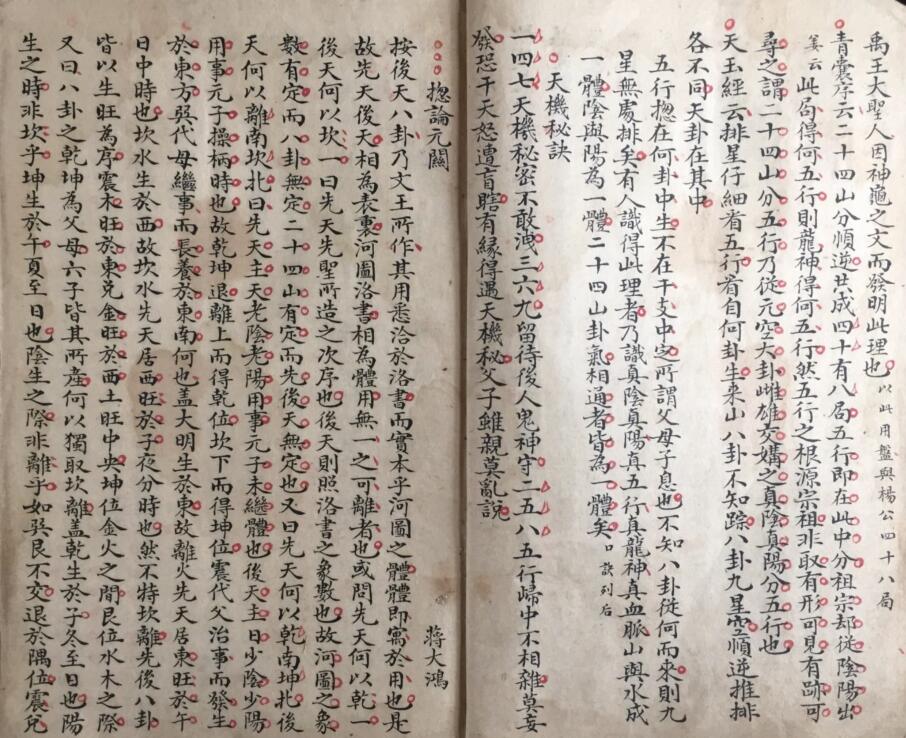 禹王大聖人因神龜之文而發明此理也以此用盤與楊公四十八局
青囊序云二十四山分順逆共成四十有八局五行即在此中分祖宗却從陰陽出
姜云此局得何五行則龍神得何五行然五行之根源宗祖非取有形可見有跡可
尋之謂二十四山分五行乃從元空大卦雌雄交媾之真陰真陽分五行也
天玉經云排星仔細看五行看自何卦生來山八卦不知踪八卦九星空順逆推排
各不同天卦在其中
五行揔在何卦中生不在干支中定所謂父母子息也不知八卦從何而來則九
星無處排矣有人識得此理者乃識真陰真陽真五行真龍神真血脈山與水成
一體陰與陽為一體二十四山卦氣相通者皆為一體矣口訣列后
天機秘訣
一四七天機秘密不敢洩三六九留待後人鬼神守二五八五行歸中不相雜莫妄
發恐干天怒遭盲瞎有緣得遇天機秘父子雖親莫亂說
揔論元關
蔣大鴻
按後天八卦乃文王所作其用悉洽於洛書而實本乎河圖之體體即寓於用也是
故先天後天相為表裏河圖洛書相為體用無一之可離者也或問先天何以乾一
後天何以坎一曰先天先聖所造之次序也後天則照洛書之象數也故河圖之象
數有定而八卦無定二十四山有定而先後天無定也又曰先天何以乾南坤北後
天何以離南坎北曰先天主天老陰老陽用事元子未繼體也後天主日少陰少陽
用事元子操柄時也故乾坤退離上而得乾位坎下而得坤位震代父治事而發生
於東方巽代母繼事而長養於東南何也盖大明生於東故離火先天居東旺於午
日中時也坎水生於西故坎水先天居西旺於子夜分時也然不特坎離先後八卦
皆以生旺為序震木旺於東兌金旺於西土旺中央坤位金火之間艮位水木之際
又曰八卦之乾坤為父母六子皆其所產何以獨取坎離盖乾生於子冬至日也陽
生之時非坎乎坤生於午夏至日也陰生之際非離乎如巽艮不交退於隅位震兌